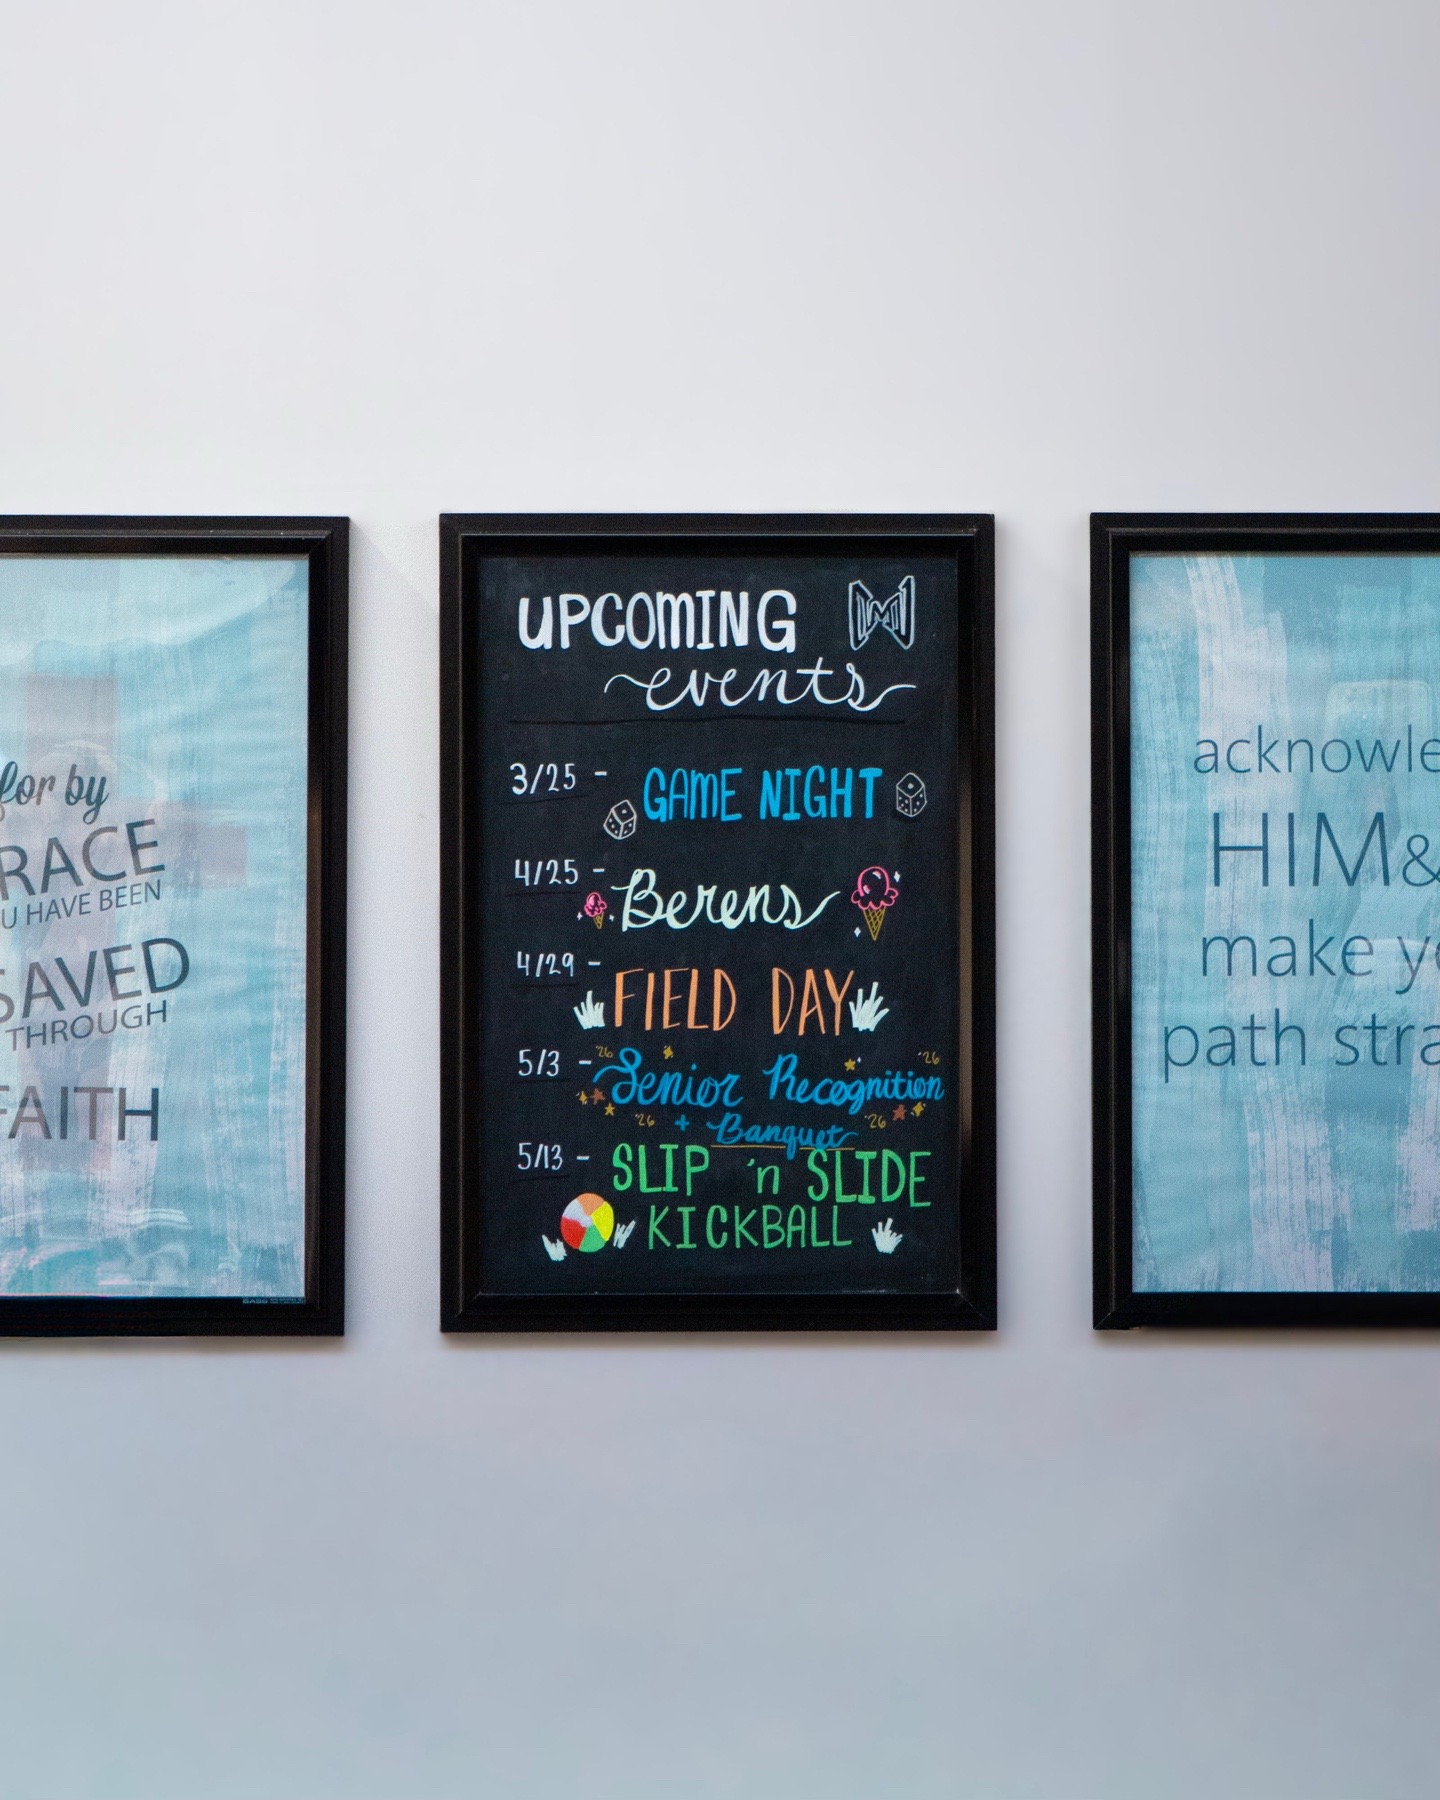 for by
RACE
U HAVE BEEN
SAVED
THROUGH
FAITH
UPCOMING
events
3/25 - GAME NIGHT
4/25 - Berens
4/29 - FIELD DAY
5/3 - '26 Senior Recognition '26
'26 + Banquet '26
5/13 - SLIP 'n SLIDE
KICKBALL
acknowle
HIM&
make yo
path stra